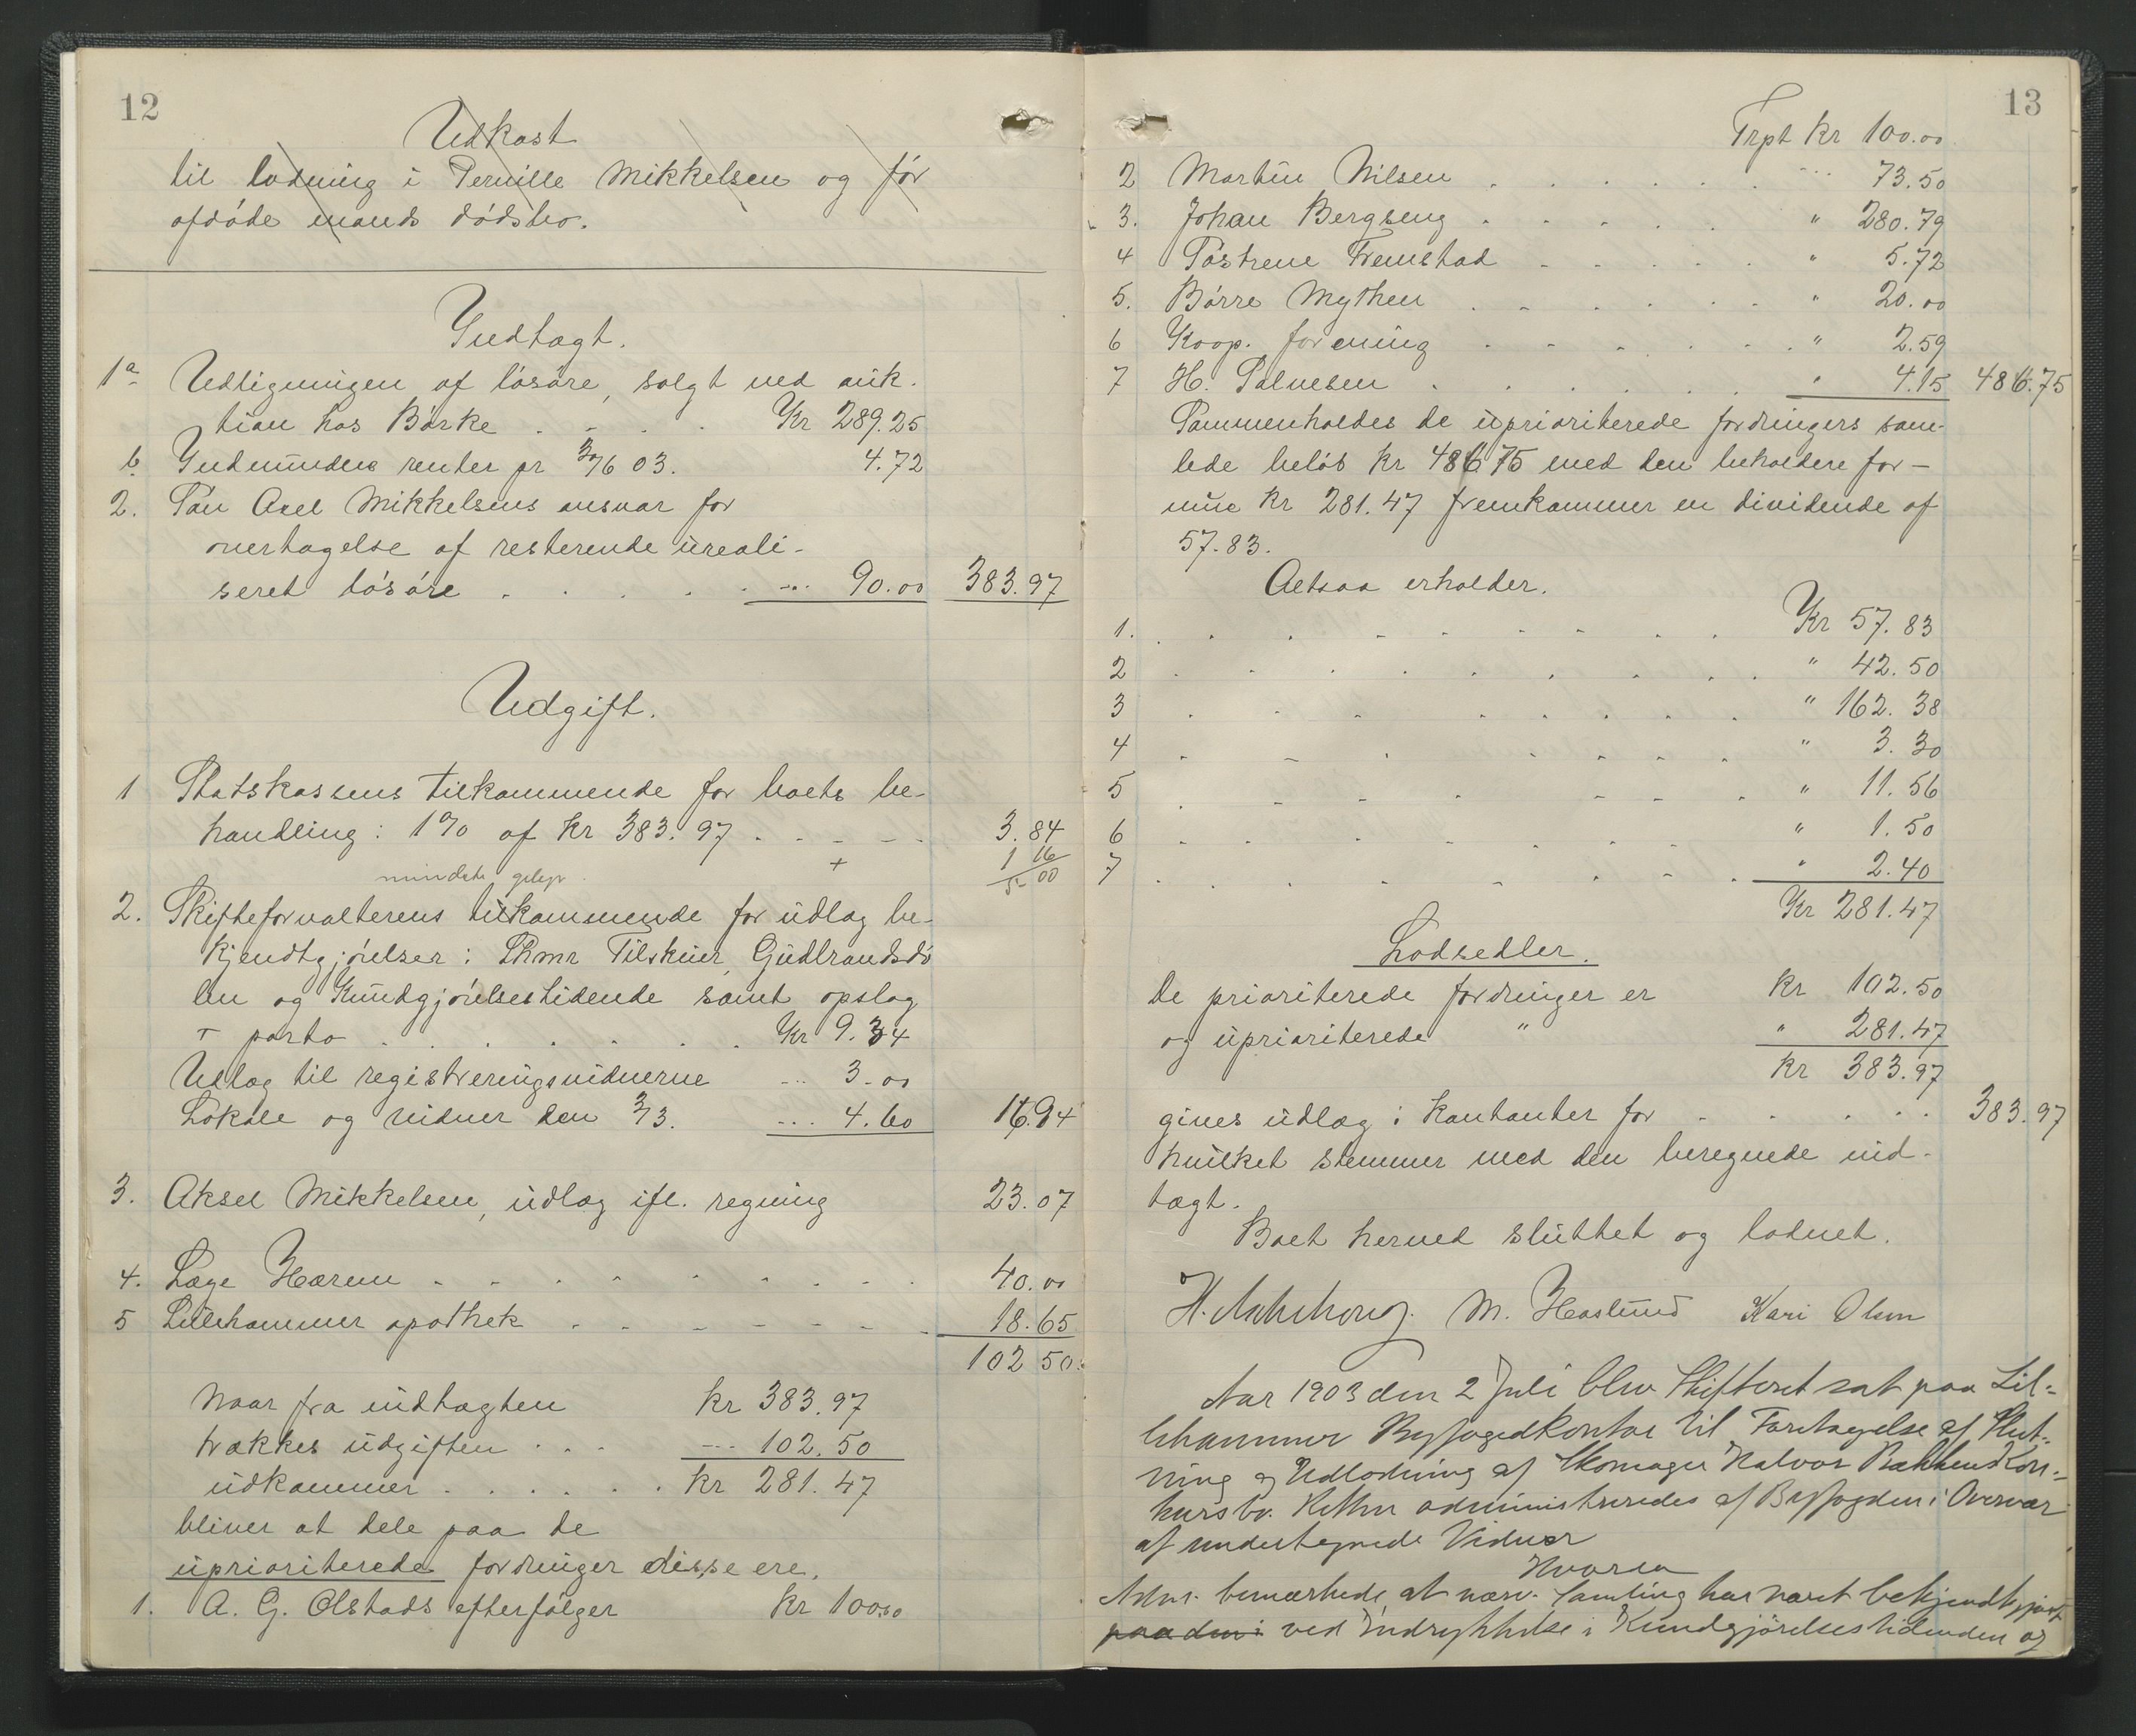 12
Udkast
til lodning i Pernille Mikkelsen og før
afdøde mands dødsbo.
Indtægt.
1a Udligningen af løsøre, solgt ved auk-
tion hos Børke . . . . Kr 289.25
b Indvundne renter pr 30/6 03. 4.72
2. Søn Axel Mikkelsens ansvar for
overtagelse af resterende ureali-
seret løsøre . . . . . --- 90.00 383.97
Udgift.
1 Statskassens tilkommende for boets be-
handling: 1% af Kr 383.97 . . . . . 3.84
mindste gebyr + 1 16
5- 00
2. Skifteforvalterens tilkommende for udlæg be-
kjendtgjørelser: Lhmr Tilskuer, Gudbrandsdø
len og Kundgjørelsestidende samt opslag
+ porto . . . . . . . Kr 9.34
Udlæg til registreringsvidnerne --- 3.00
Lokale og vidner den 3/3. --- 4.60 16.94
3. Aksel Mikkelsen, udlæg ifl. regning 23.07
4. Læge Hærem . . . . . . . . . 40.00
5 Lillehammer apothek . . . . . . . 18.65
102 50.
Naar fra indtægten Kr 383.97
trækkes udgiften . . . --- 102.50
udkommer . . . . . . Kr 281.47
bliver at dele paa de
uprioriterede fordringer disse ere.
1. A. G. Olstads efterfølger Kr 100.00
13
Trpt Kr 100.00
2 Martin Nilsen . . . . . . --- 73.50
3. Johan Bergseng . . . . . " 280.79
4 Søstrene Fremstad . . . . . " 5.72
5. Børre Mythen . . . . . . " 20.00
6 Koop. forening . . . . . . " 2.59
7 H. Salvesen . . . . . . " 4.15 486.75
Sammenholdes de uprioriterede fordringers sam-
lede beløb Kr 486.75 med den beholdere for-
mue Kr 281.47 fremkommer en dividende af
57.83.
Altsaa erholder.
1. . . . . . . . . Kr 57.83
2 . . . . . . . . " 42.50
3 . . . . . . . . " 162.38
4 . . . . . . . . " 3.30
5 . . . . . . . . " 11.56
6 . . . . . . . . " 1.50
7 . . . . . . . . " 2.40
Kr 281.47
Lodsedler.
De prioriterede fordringer er Kr 102.50
og uprioriterede " " 281.47
Kr 383.97
gives udlæg i kontanter for . . . . . 383.97
hvilket stemmer med den beregnede ind-
tægt.
Boet herved sluttet og lodnet.
M. Haslund Kari Olsen
Aar 1903 den 2 Juli blev Skifteret sat paa Lil-
lehammer Byfogedkontor til Foretagelse af Slut-
ning og Udlodning af Skomager Halvor Bakkens Kon-
kursbo. Retten administreredes af Byfogden i Overvær
af undertegnede Vidner
Hvorda
Adm. bemærkede, at nærv. Samling har været bekjendtgjort
paa den i ved Indrykkelse i Kundgjørelsestidenden og